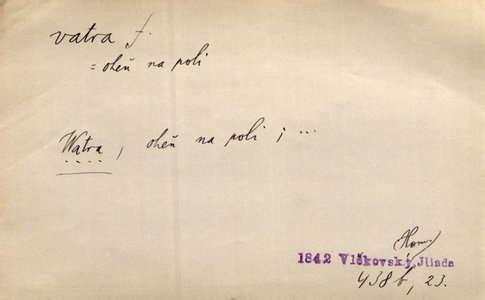 vatra f.
= oheň na poli
Watra, oheň na poli; ...
1842 Vlčkovský, Jliada
438 b, 23.